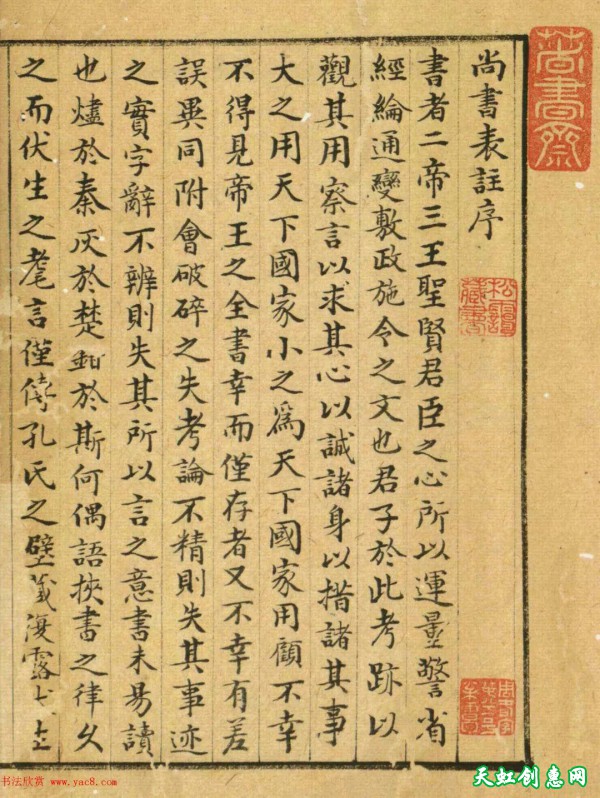 尚書齋
尚書表註序
書者二帝三王聖賢君臣之心所以運量警省
經綸通變敷政施令之文也君子於此考跡以
觀其用察言以求其心以誠諸身以措諸其事
大之用天下國家小之爲天下國家用顧不幸
不得見帝王之全書幸而僅存者又不幸有差
誤異同附會破碎之失考論不精則失其事迹
之實字辭不辨則失其所以言之意書未易讀
也燼於秦灰於楚鉗於斯何偶語挾書之律久
之而伏生之耄言僅傳孔氏之壁藏復露
書法欣賞 www.yac8.com
天虹创意网